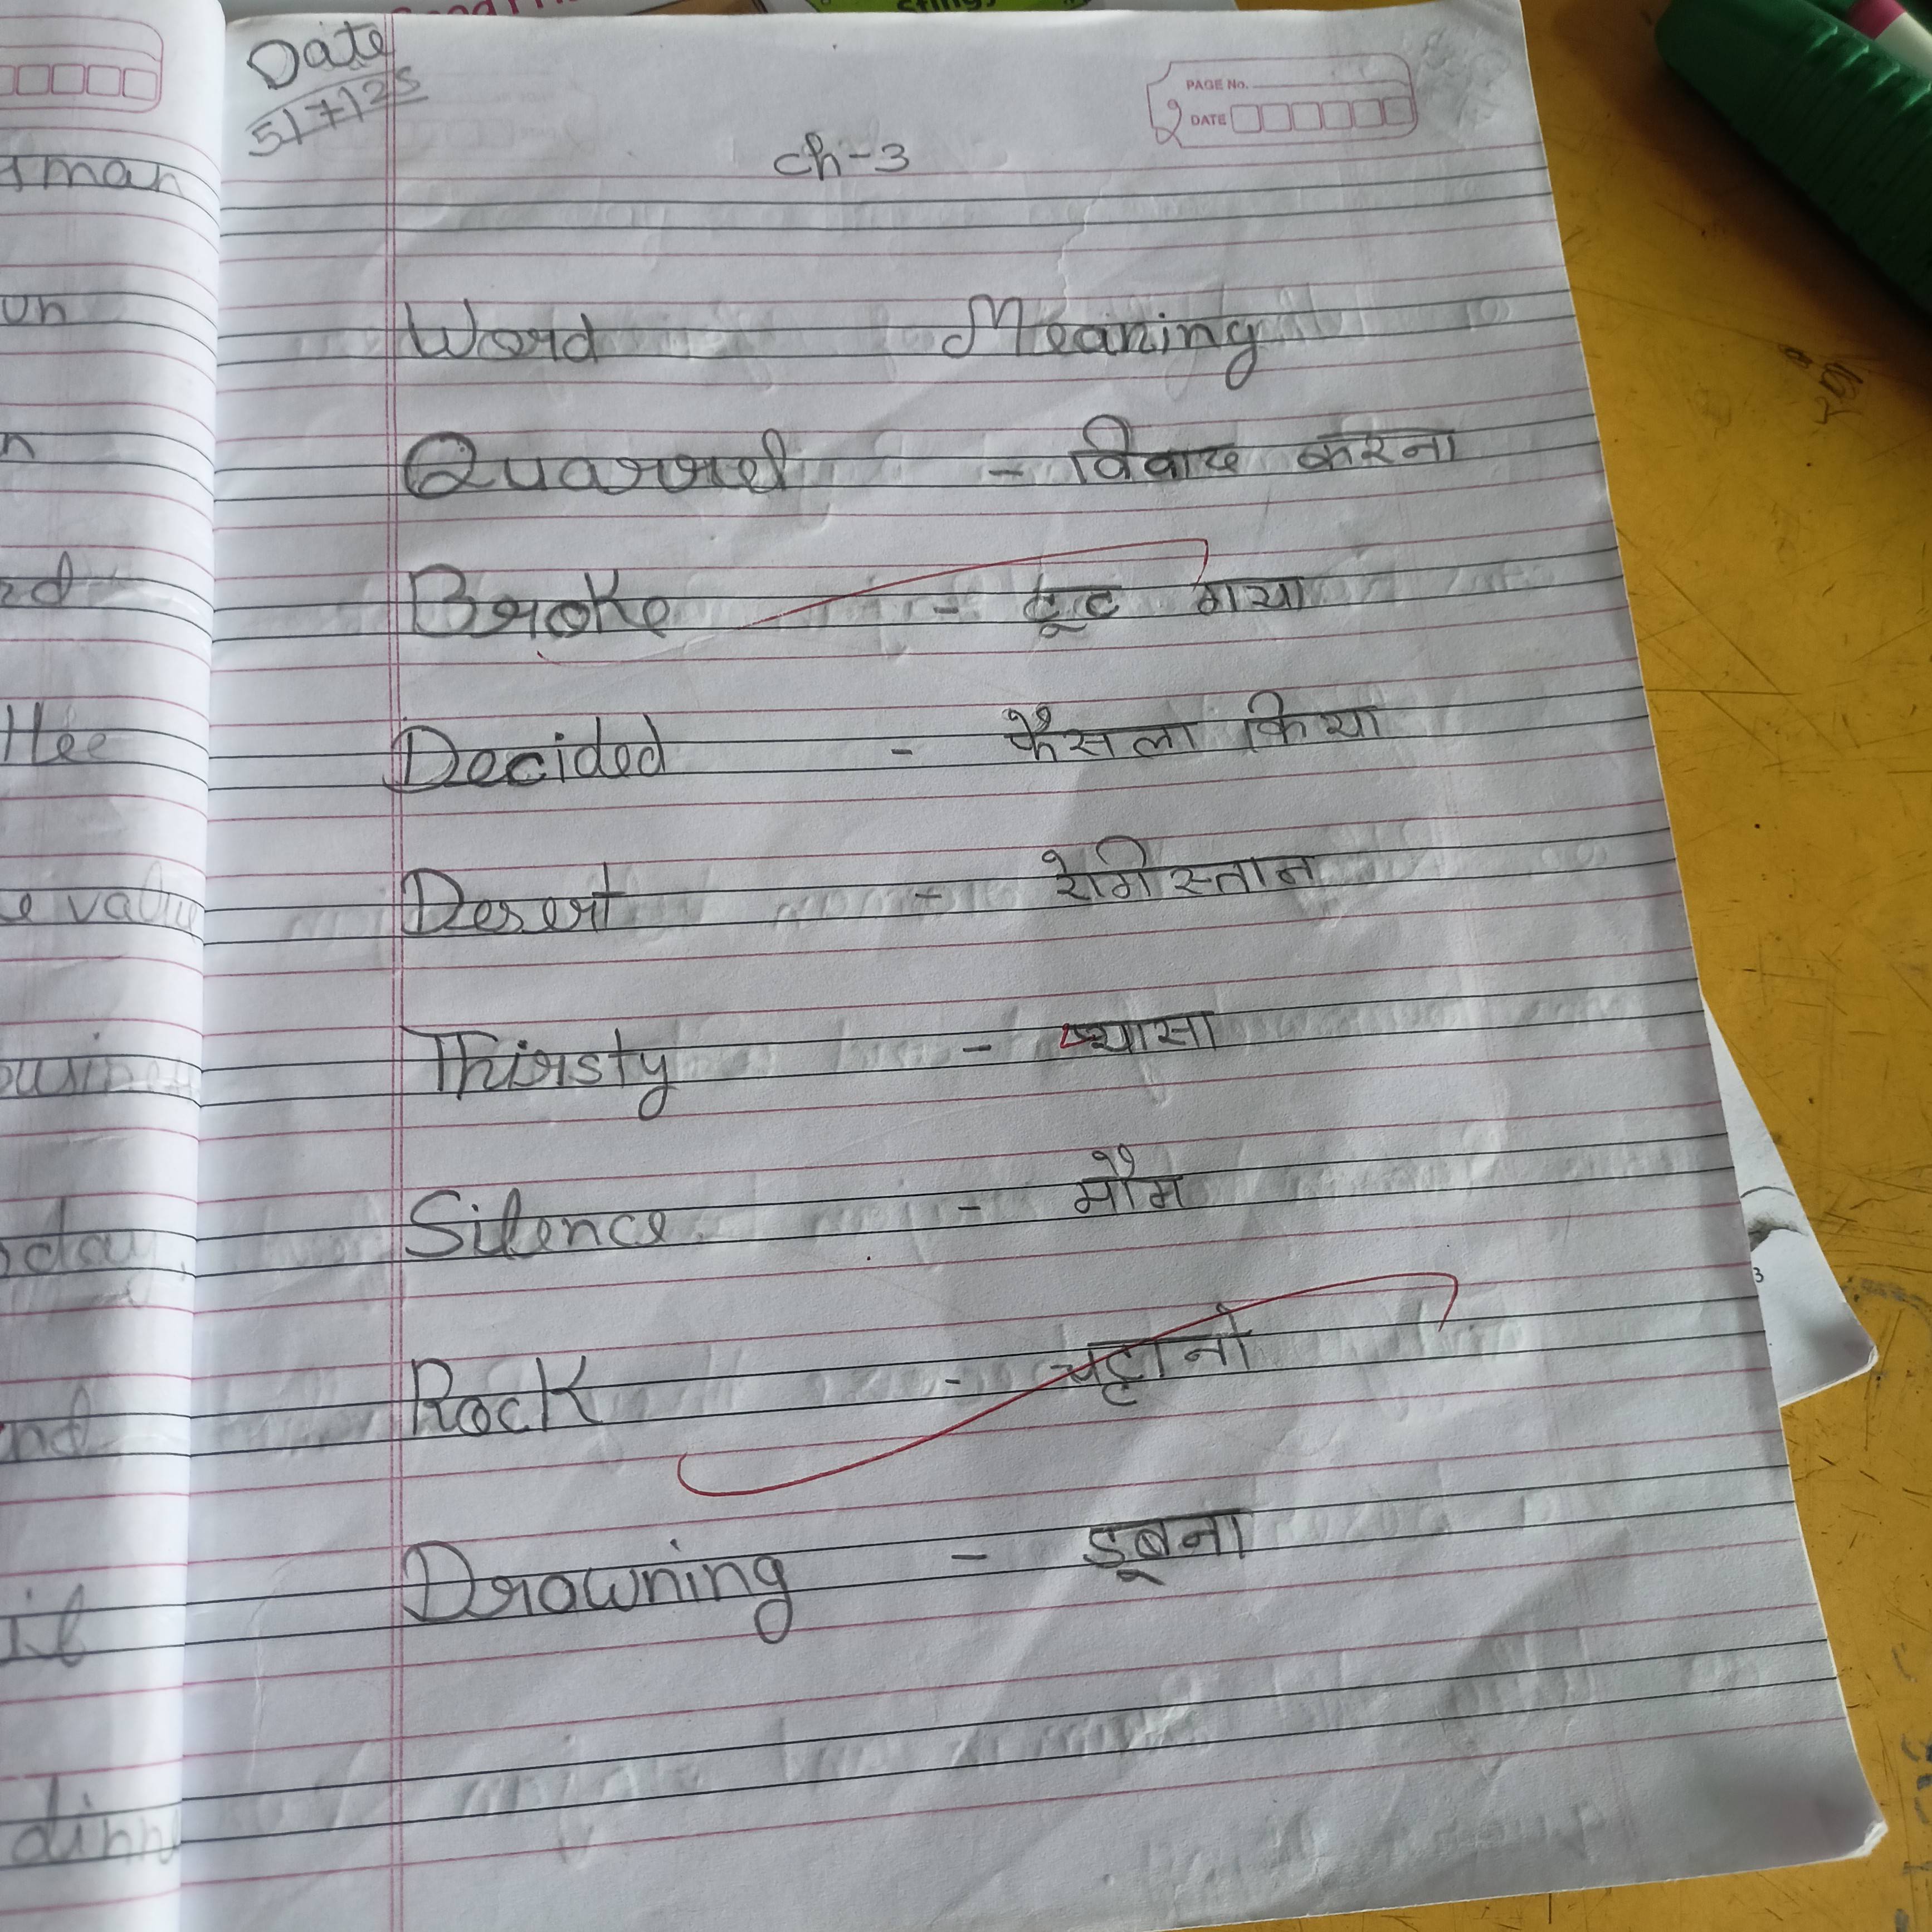 Date
5/7/25
PAGE No.
DATE
ch-3
Word Meaning
Quarrel - विवाद करना
Broke - टूट गया
Decided - फैसला किया
Desert - रेगिस्तान
Thirsty - प्यासा
Silence - मौम
Rock - चट्टानो
Drowning - डूबना
man
un
n
Hee
e value
nd
dinn
3